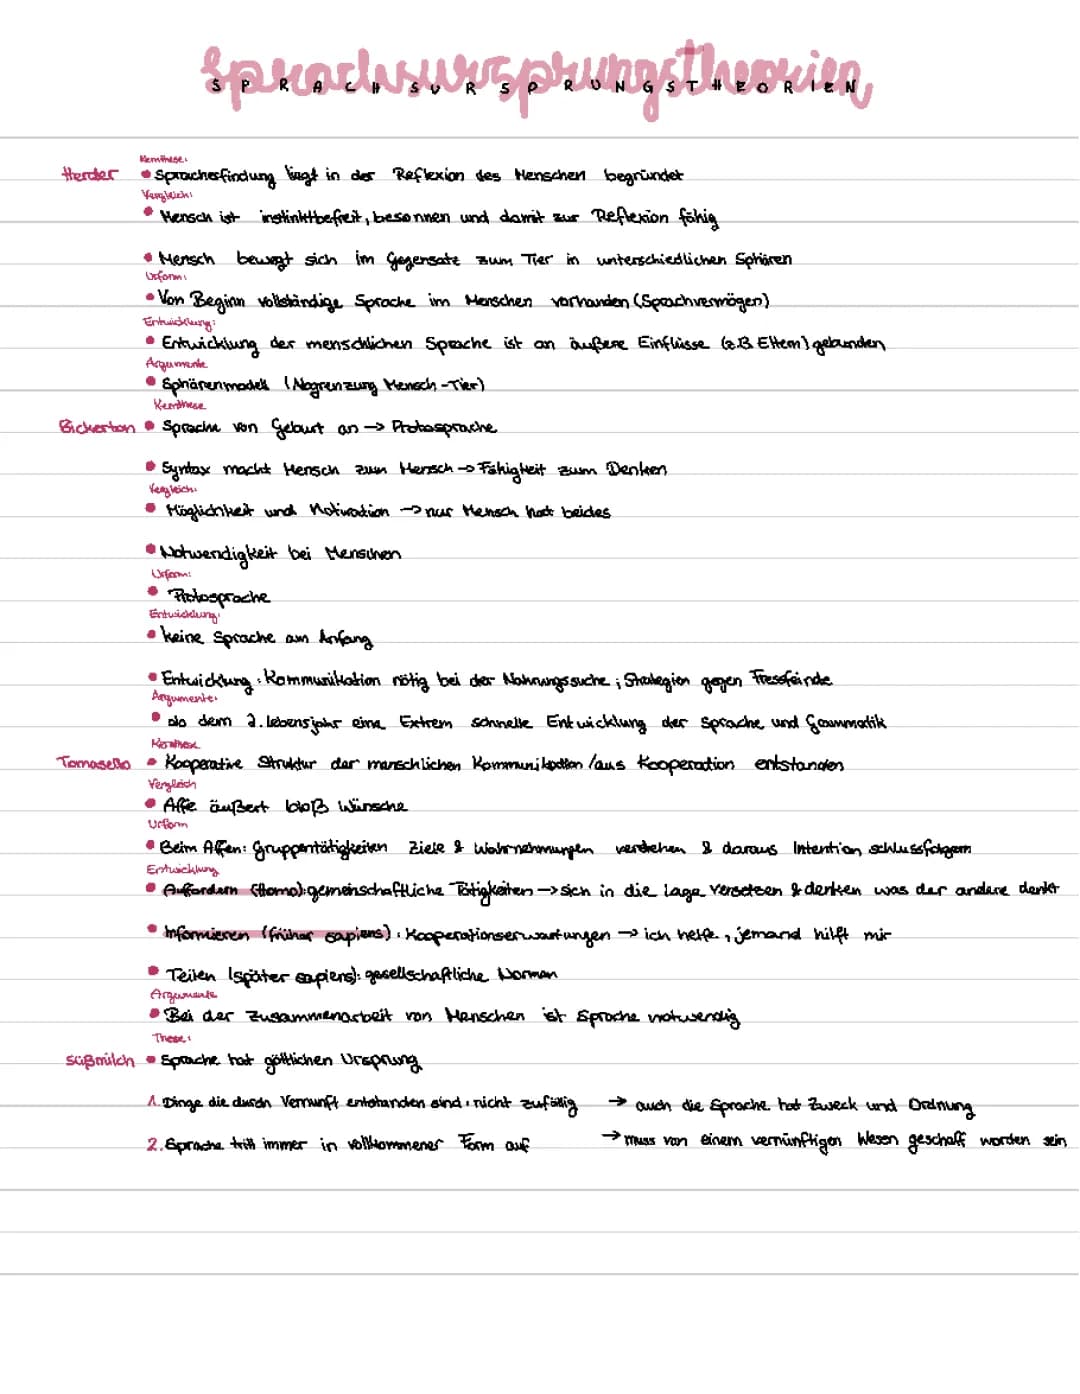 Sprachsursprungstheorien
SPRACHSURSPRUNGSTHEORIEN
Kernthese:
Herder • Spracherfindung liegt in der Reflexion des Menschen begründet
Vergleich:
• Mensch ist instinktbefreit, besonnen und damit zur Reflexion fähig
• Mensch bewegt sich im Gegensatz zum Tier in unterschiedlichen Sphären
Urform:
• Von Beginn vollständige Sprache im Menschen vorhanden (Sprachvermögen)
Entwicklung:
• Entwicklung der menschlichen Sprache ist an äußere Einflüsse (z.B. Eltern) gebunden
Argumente
• Sphärenmodell (Abgrenzung Mensch-Tier)
Kernthese
Bickerton • Sprache von Geburt an → Protosprache
• Syntax macht Mensch zum Mensch → Fähigkeit zum Denken
Vergleich:
• Möglichkeit und Motivation → nur Mensch hat beides
• Notwendigkeit bei Menschen
Urform:
• Protosprache
Entwicklung:
• keine Sprache am Anfang
• Entwicklung: Kommunikation nötig bei der Nahrungssuche; Strategien gegen Fressfeinde
Argumente:
• ab dem 2. lebensjahr eine Extrem schnelle Entwicklung der Sprache und Grammatik
Kernthese
Tomasello • Kooperative Struktur der menschlichen Kommunikation /aus Kooperation entstanden
Vergleich
• Affe äußert bloß Wünsche
Urform
• Beim Affen: Gruppentätigkeiten Ziele & Wahrnehmungen verstehen & daraus Intention schlussfolgern
Entwicklung
• Auffordern (Homo): gemeinschaftliche Tätigkeiten → sich in die Lage versetzen & denken was der andere denkt
• Informieren (früher sapiens): Kooperationserwartungen → ich helfe, jemand hilft mir
• Teilen (später sapiens): gesellschaftliche Normen
Argumente
• Bei der Zusammenarbeit von Menschen ist Sprache notwendig
These:
Süßmilch • Sprache hat göttlichen Ursprung
1. Dinge die durch Vernunft entstanden sind, nicht zufällig → auch die Sprache hat Zweck und Ordnung
2. Sprache tritt immer in vollkommener Form auf → muss von einem vernünftigen Wesen geschaff worden sein